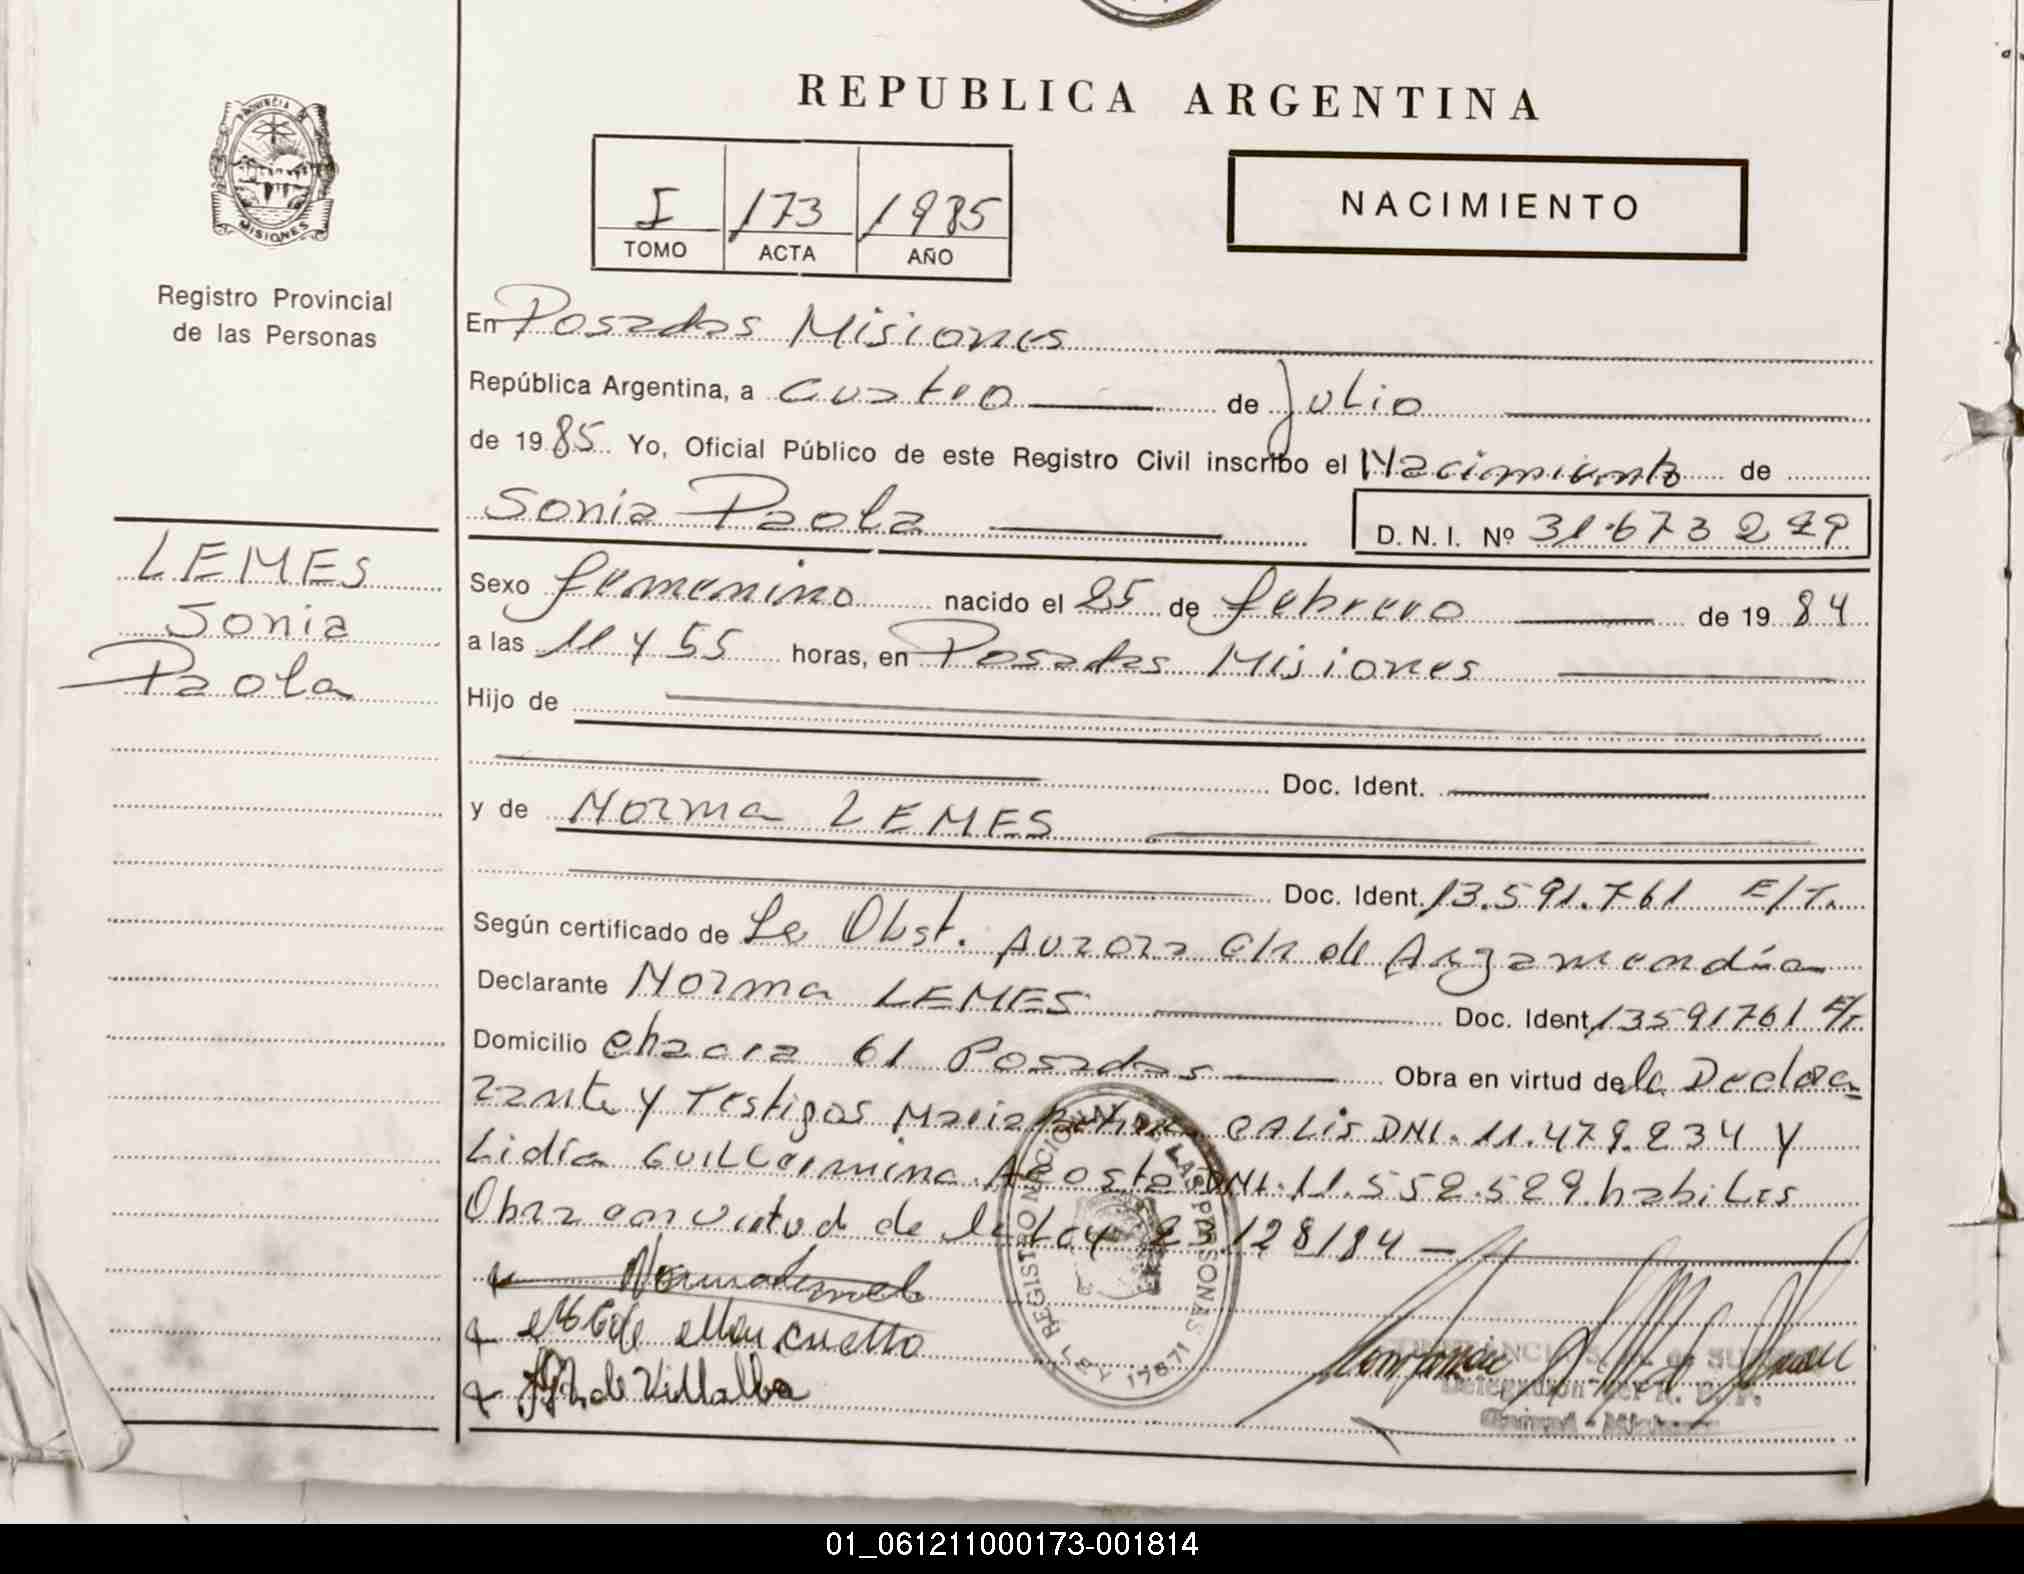 REPUBLICA ARGENTINA
PROVINCIA DE
MISIONES
I 173 1985
TOMO ACTA AÑO
NACIMIENTO
Registro Provincial
de las Personas
LEMES
Sonia
Paola
En Posadas Misiones
República Argentina, a cuatro de Julio
de 1985 Yo, Oficial Público de este Registro Civil inscribo el Nacimiento de
Sonia Paola D. N. I. Nº 31.673 2
Sexo femenino nacido el 25 de febrero de 1984
a las 11 y 55 horas, en Posadas Misiones
Hijo de
Doc. Ident.
y de Norma LEMES
Doc. Ident. 13.591.761 E/T.
Según certificado de La Obst. Aurora de Argamendía
Declarante Norma LEMES Doc. Ident. 13591761 E/T
Domicilio chacra 61 Posadas Obra en virtud de la Decla
rante y Testigos Maria CALIS DNI. 11.479.234 y
Lidia Guillermina Acosta DNI. 11.552.529 habiles
Obra en virtud de la Ley 23.128/84 —
REGISTRO NACIONAL DE LAS PERSONAS
LEY 17671
Norma Lemes
de Villalba
Delegación del R. P. P.
01_061211000173-001814